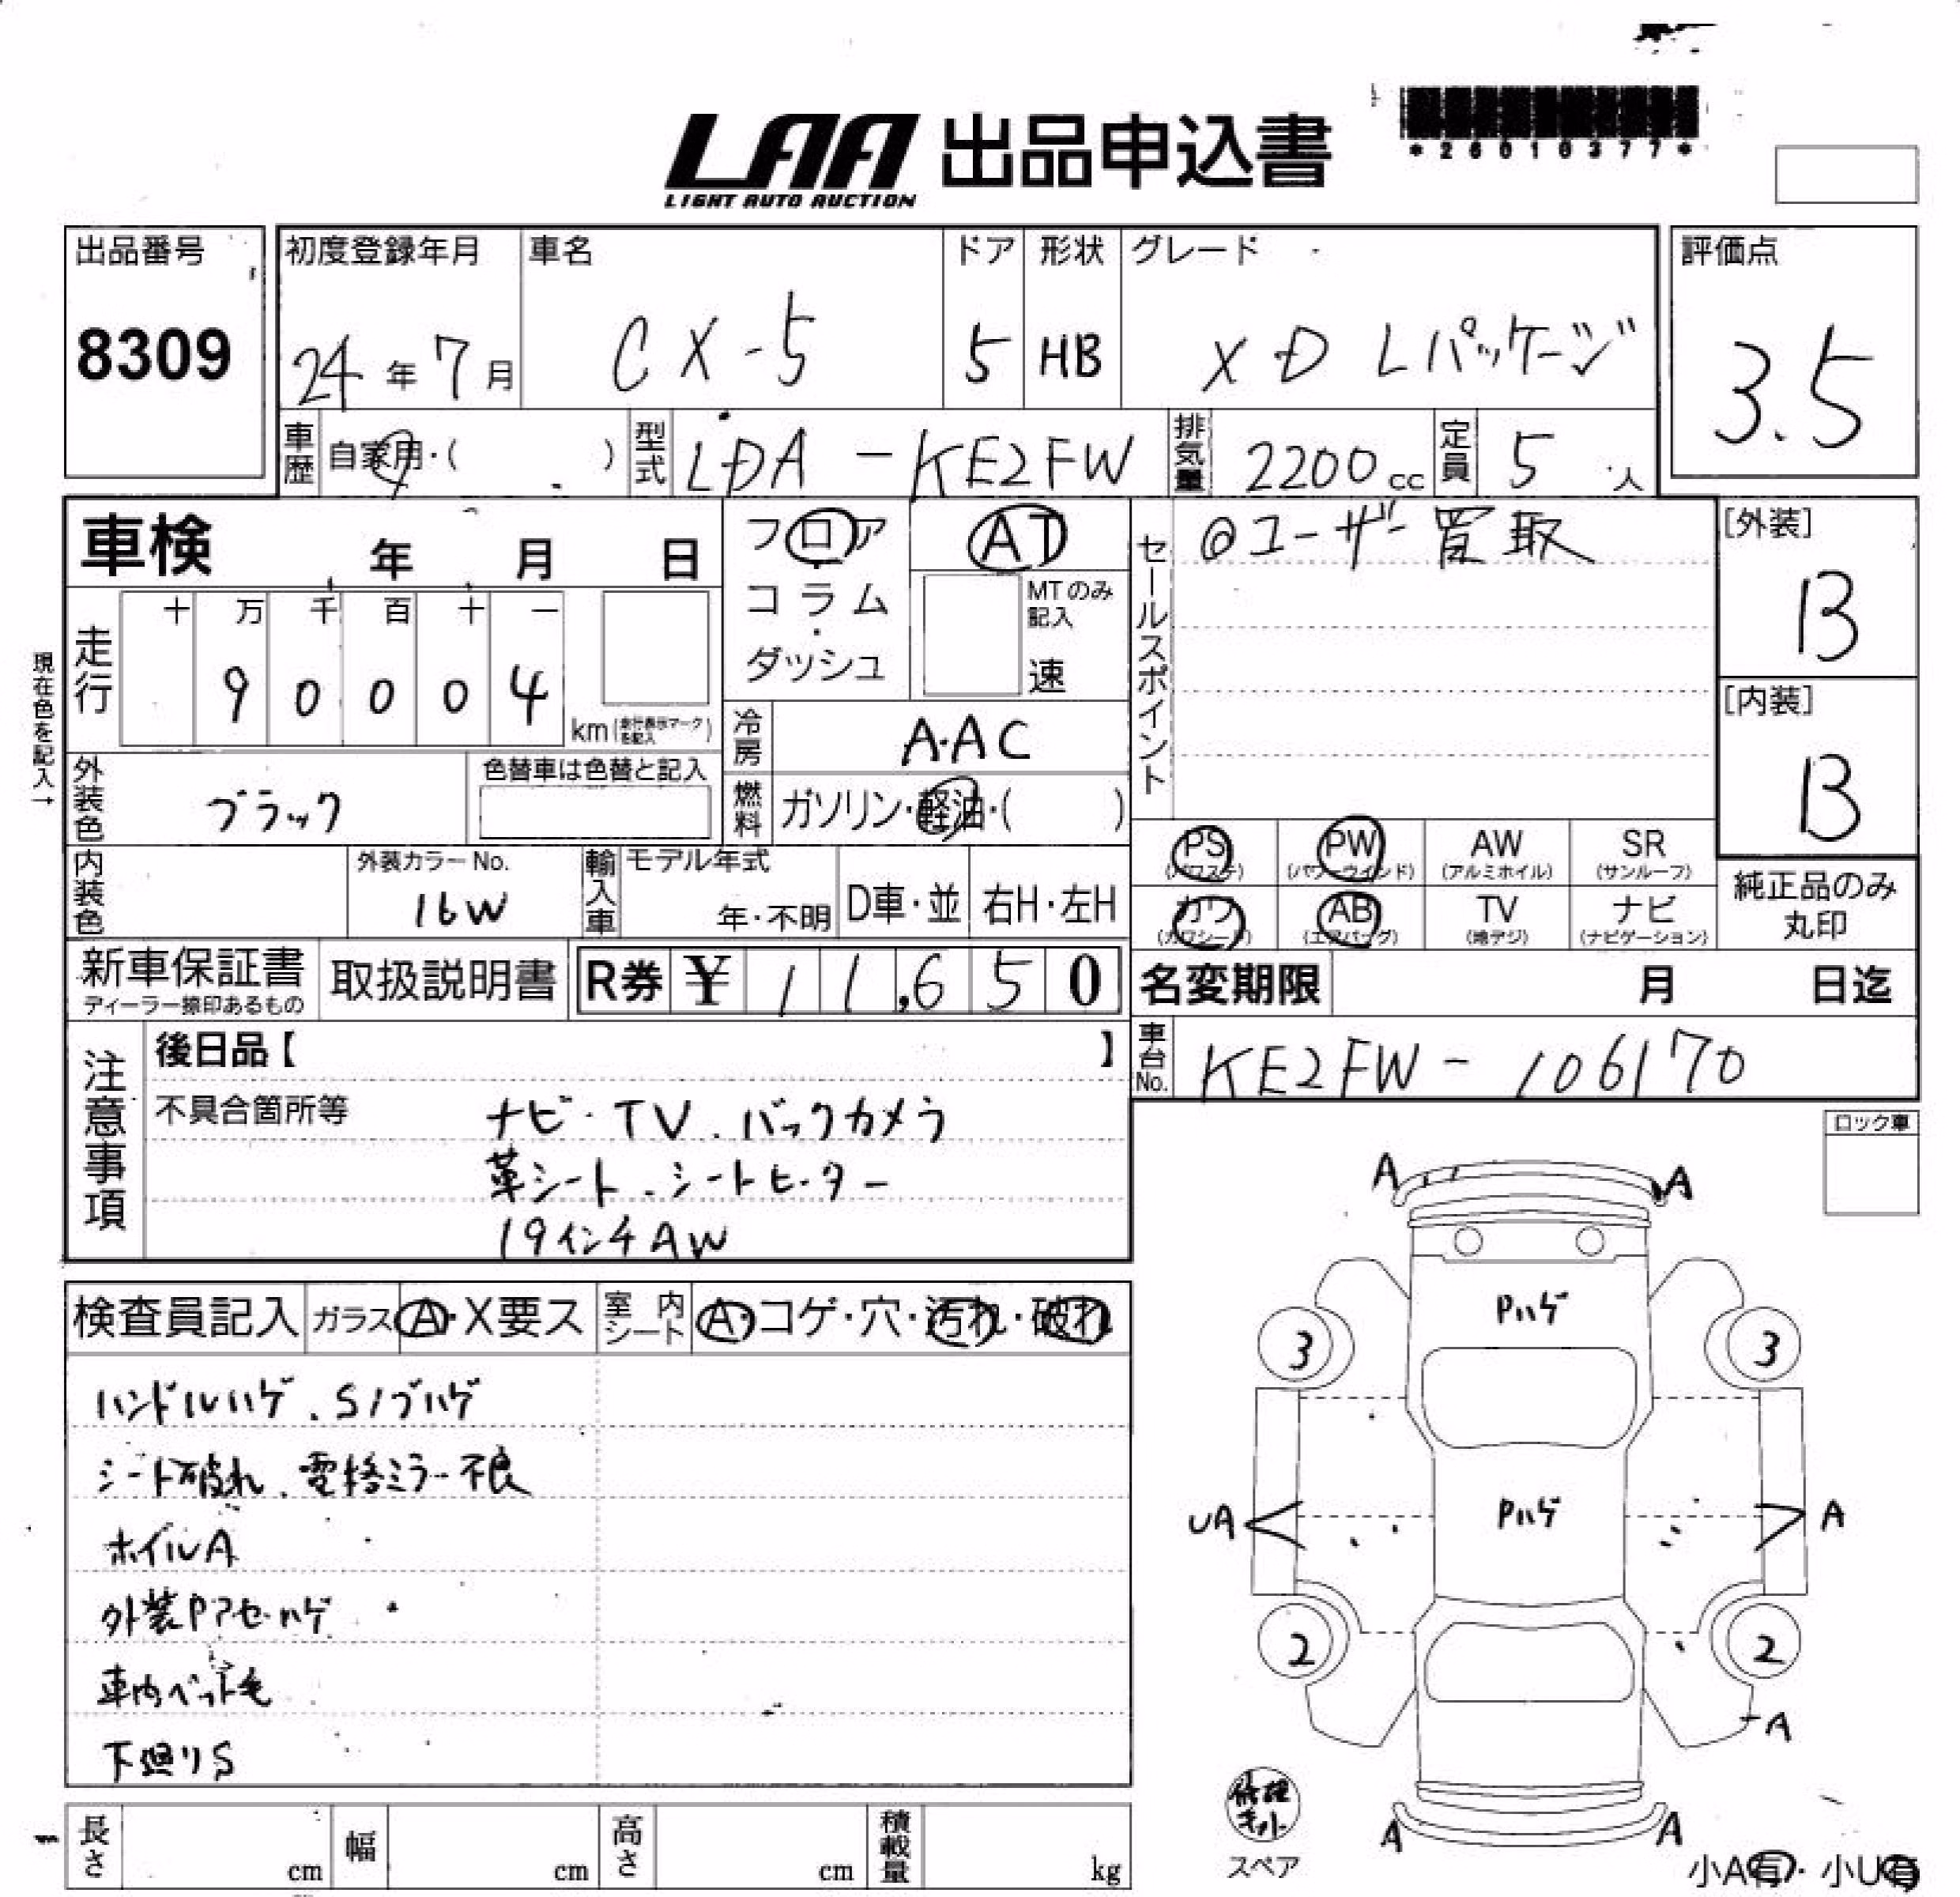 LAA 出品申込書
LIGHT AUTO AUCTION
*26010377*
出品番号
8309
初度登録年月
24年7月
車名
CX-5
ドア
5
形状
HB
グレード
XD Lパッケージ
評価点
3.5
車歴
自家用・( )
型式
LDA-KE2FW
排気量
2200cc
定員
5人
車検 年 月 日
フロア
コラム
・
ダッシュ
AT
MTのみ
記入
速
セールスポイント
◎ユーザー買取
[外装]
B
[内装]
B
現在色を記入→
走行
十 万 千 百 十 一
9 0 0 0 4
km(走行表示マークを記入)
冷房
AAC
燃料
ガソリン・軽油・( )
外装色
ブラック
色替車は色替と記入
PS
(パワステ)
PW
(パワーウインド)
AW
(アルミホイル)
SR
(サンルーフ)
カワ
(カワシート)
AB
(エアバッグ)
TV
(地デジ)
ナビ
(ナビゲーション)
純正品のみ
丸印
内装色
外装カラーNo.
16W
輸入車
モデル年式
年・不明
D車・並
右H・左H
新車保証書
ディーラー捺印あるもの
取扱説明書
R券 ¥ 11,650
名変期限 月 日迄
車台No.
KE2FW-106170
注意事項
後日品【 】
不具合箇所等
ナビ・TV.バックカメラ
革シート.シートヒーター
19インチAW
ロック車
検査員記入
ガラス
A・X要ス
室内シート
A・コゲ・穴・汚れ・破れ
ハンドルハゲ.Sノブハゲ
シート破れ.電格ミラー不良
ホイルA
外装Pアセ・ハゲ
車内ペット毛
下廻りS
A A
Pハゲ
3 3
UA Pハゲ A
2 2
A
A A
修理キット
スペア
小A有・小U有
長さ cm
幅 cm
高さ cm
積載量 kg